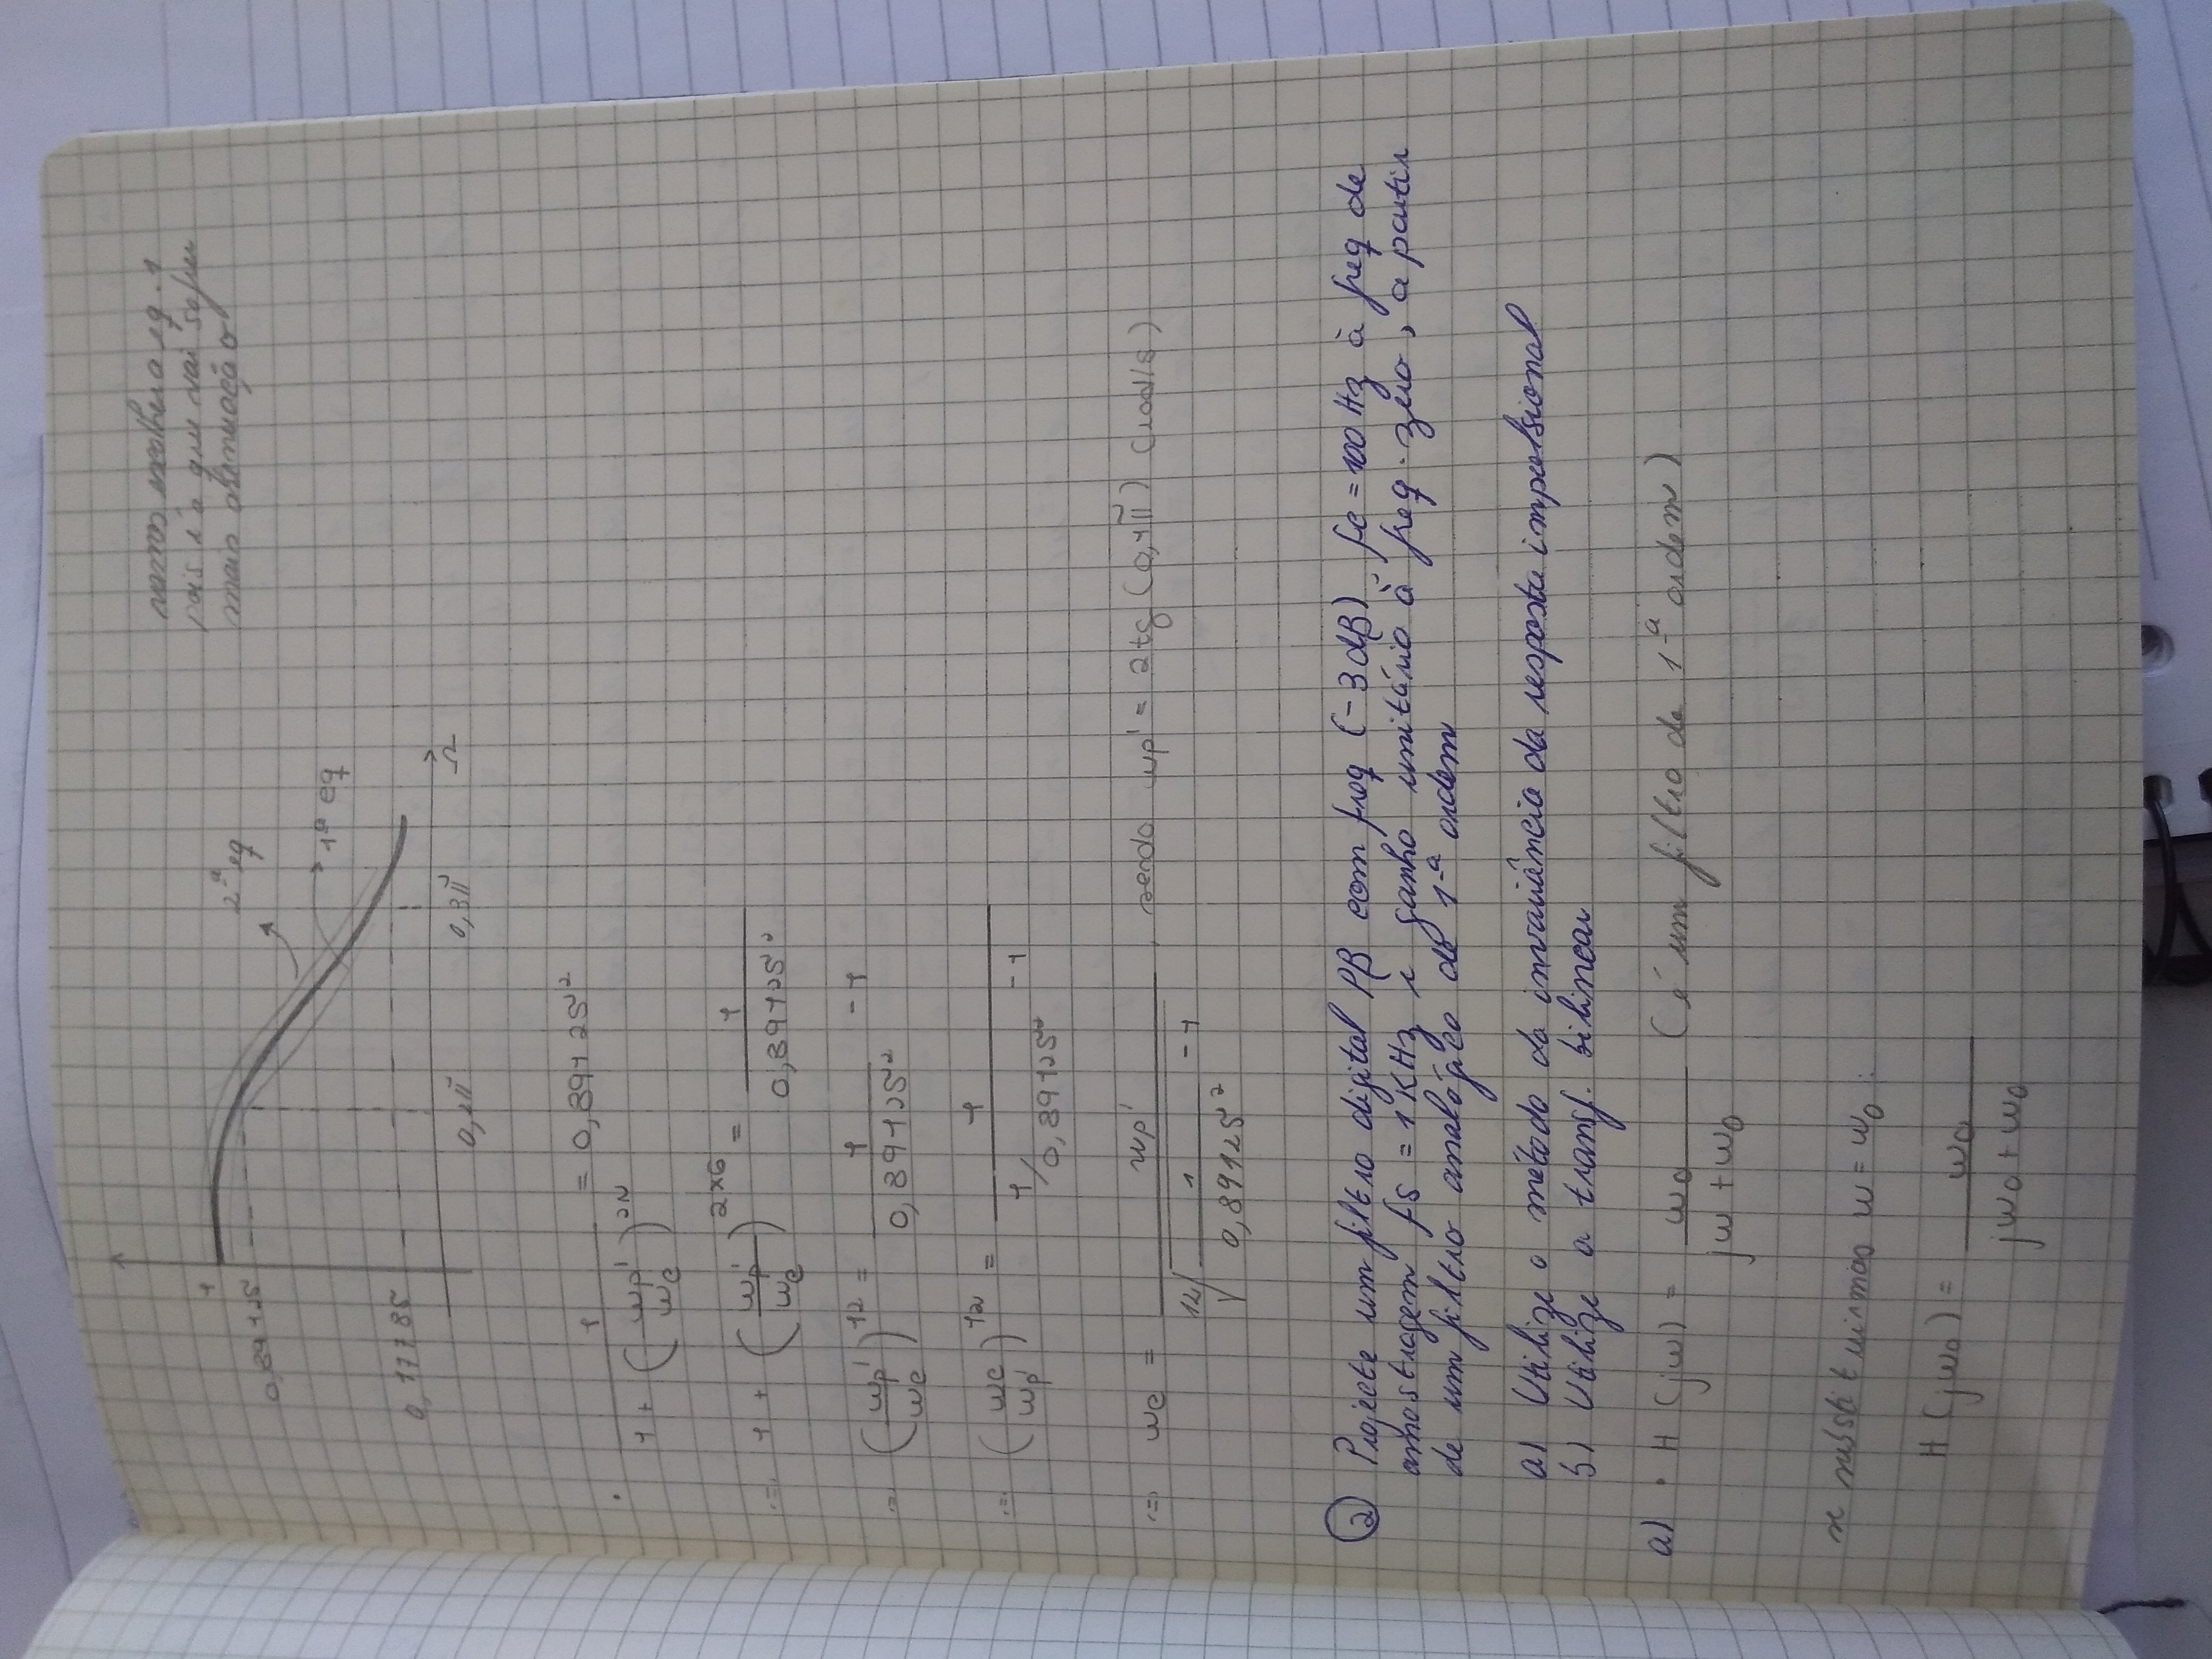 vamos escolher a eq. 1
pois é a que vai sofrer
mais atenuação
1
0,89125
2ª eq
1ª eq
0,17785
0,2π
0,3π
Ω
1 / (1 + (wp'/wc)^2N) = 0,89125²
∴ 1 + (wp'/wc)^2×6 = 1 / 0,89125²
= (wp'/wc)^12 = 1 / 0,89125² - 1
∴ (wc/wp')^12 = 1 / (1/0,89125² - 1)
∴ wc = wp' / 12√(1/0,89125² - 1), sendo wp' = 2tg (0,1π) (rad/s)
② Projecte um filtro digital PB com freq (-3dB) fc = 100 Hz à freq de
amostragem fs = 1 KHz e ganho unitário à freq. zero, a partir
de um filtro analógico de 1ª ordem
a) Utilize o método da invariância da resposta impulsional
b) Utilize a transf. bilinear
a) • H (jw) = w0 / (jw + w0) (é um filtro de 1ª ordem)
se substituirmos w = w0 :
H (jw0) = w0 / (jw0 + w0)